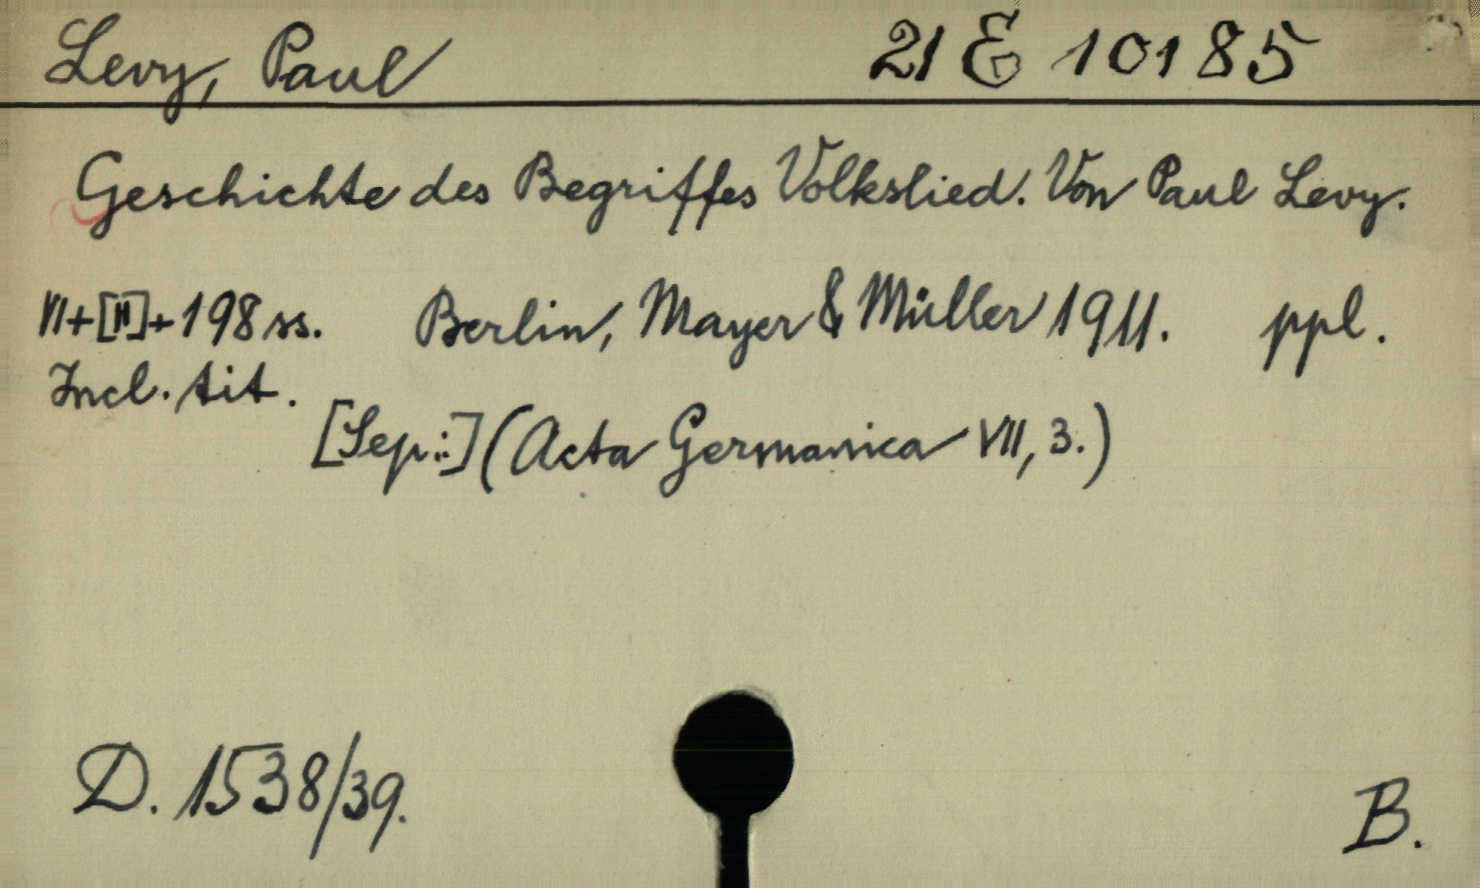 Levy, Paul 21 E 10185
Geschichte des Begriffes Volkslied. Von Paul Levy.
VI+[II]+198 ss. Berlin, Mayer & Müller 1911. ppl.
Incl. tit.
[Sep.:] (Acta Germanica VII, 3.)
D. 1538/39. B.